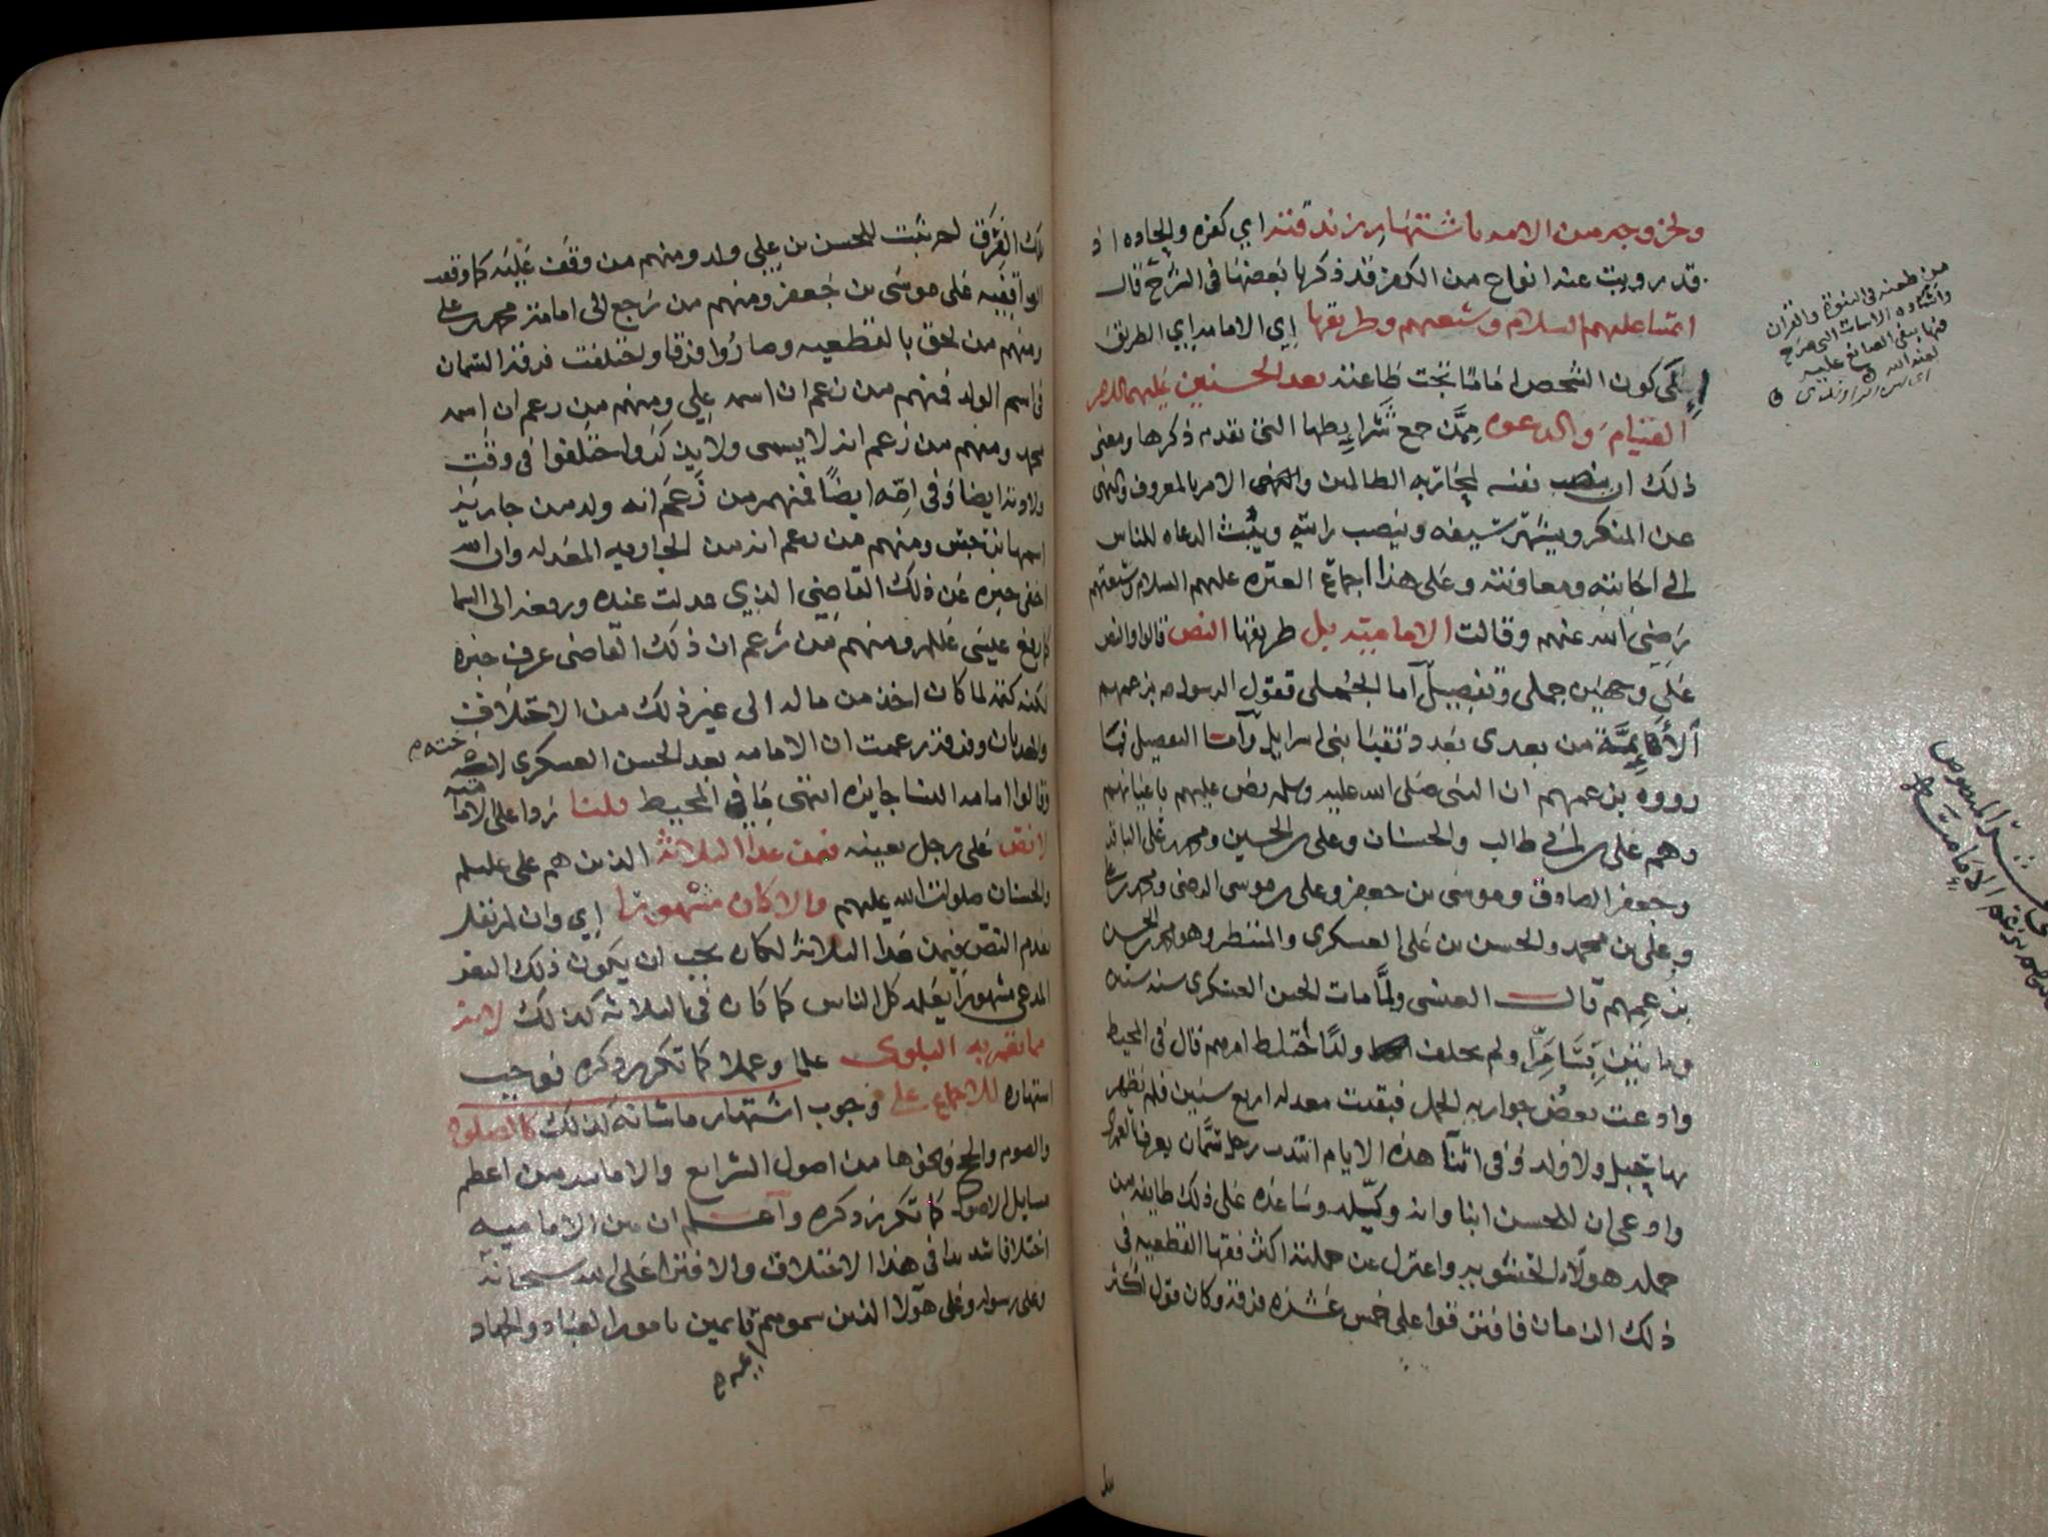 ولخروجه من الامه باشتهار زندقته اي كفره والحاده اذ
قد رويت عنه انواع من الكفر قد ذكرنا بعضها في الشرح قال
ائمتنا عليهم السلام وشيعتهم وطريقها اي الامامه اي الطريق
الى كون الشخص اماما تجب طاعته بعد الحسنين عليهما السلام
القيام والدعوه ممن جمع شرايطها التي تقدم ذكرها ومعنى
ذلك ان ينصب نفسه لمحاربه الظالمين والامر بالمعروف والنهي
عن المنكر ويشهر سيفه وينصب رايته ويبث الدعاه للناس
الى اجابته ومعاونته وعلى هذا اجماع العتره عليهم السلام وشيعتهم
رضي الله عنهم وقالت الاماميه بل طريقها النص قالوا والنص
على وجهين جملي وتفصيلي اما الجملي فقول الرسول صه بزعمهم
الائمة من بعدي بعدد نقبا بني اسرايل واما التفصيل فما
رووه بزعمهم ان النبي صلى الله عليه وسلم نص عليهم باعيانهم
وهم علي بن ابي طالب والحسنان وعلي بن الحسين ومحمد بن علي الباقر
وجعفر الصادق وموسى بن جعفر وعلي بن موسى الرضى ومحمد بن علي
وعلي بن محمد والحسن بن علي العسكري والمنتظر وهو محمد بن الحسن
بزعمهم قال العنسي ولما مات الحسن العسكري سنه ستين
وماتين بسامرا ولم يخلف ولدا اختلط امرهم قال في المحيط
وادعت بعض جواريه الحمل فبقيت معدله اربع سنين فلم يظهر
بها حبل ولا ولد وفي اثنا هذه الايام انتدب رجل سمان يعرف بالعمري
وادعى ان للحسن ابنا وانه وكيله وساعده على ذلك طايفه من
جمله هولاء الحشويه واعتزل عن جملته اكثر فقها القطعيه في
ذلك الزمان فافترقوا على خمس عشره فرقه وكان قول اكثر
من طعنه في النبوة والقران
وانشاده الابيات التي صرح
فيها بنفي الصانع عليه
لعنه الله
اي ابن الراوندي
الامامة
تلك الفرق لم يثبت للحسن بن علي ولد ومنهم من وقف عليه كما وقف
الواقفيه على موسى بن جعفر ومنهم من رجع الى امامة محمد بن علي
ومنهم من لحق بالقطعيه وصاروا فرقا واختلفت فرقة السمان
في اسم الولد فمنهم من زعم ان اسمه علي ومنهم من زعم ان اسمه
محمد ومنهم من زعم انه لا يسمى ولا يذكر واختلفوا في وقت
ولادته ايضا وفي امه ايضا فمنهم من زعم انه ولد من جارية
اسمها نرجس ومنهم من زعم انه من الجاريه المعدله وان الله
اخفى خبره عن ذلك القاضي الذي عدلت عنده ورفعه الى السما
كما رفع عيسى عللم ومنهم من زعم ان ذلك القاضي عرف خبره
لكنه كتمه لما كان اخذ من ماله الى غير ذلك من الاختلاف
والهذيان وفرقة زعمت ان الامامه بعد الحسن العسكري
وقالوا امامه النسا جايزه انتهى ما في المحيط قلنا ردا على الاماميه
لا نص على رجل بعينه فيمن عدا الثلاثة الذين هم علي عليلم
والحسنان صلوات الله عليهم والا كان مشهورا اي وان لم نقل
بعدم النص فيمن عدا الثلاثة لكان يجب ان يكون ذلك النص
المدعى مشهورا يعلمه كل الناس كما كان في الثلاثه كذلك لانه
مما تعم به البلوى علما وعملا كما تكرر ذكره فوجب
اشتهاره للاجماع على وجوب اشتهار ما شانه كذلك كالصلوه
والصوم والحج ونحوها من اصول الشرايع والامامه من اعظم
مسايل الاصول كما تكرر ذكره واعلم ان بين الاماميه
اختلافا شديدا في هذا الاختلاق والافترا على الله سبحانه
وعلى رسوله وعلى هولا الذين سموهم قايمين بامور العباد والجهاد